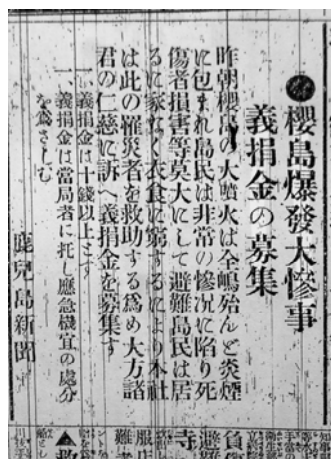 櫻島爆發大慘事
義捐金の募集
昨朝櫻島の大噴火は全嶋殆んど炎煙
に包まれ島民は非常の慘況に陷り死
傷者損害等莫大にして避難島民は居
るに家なく衣食に窮するにより本社
は此の罹災者を救助する爲め大方諸
君の仁慈に訴へ義捐金を募集す
一、義捐金は十錢以上とす
一、義捐金は當局者に托し應急機宜の處分
を爲さしむ
鹿兒島新聞